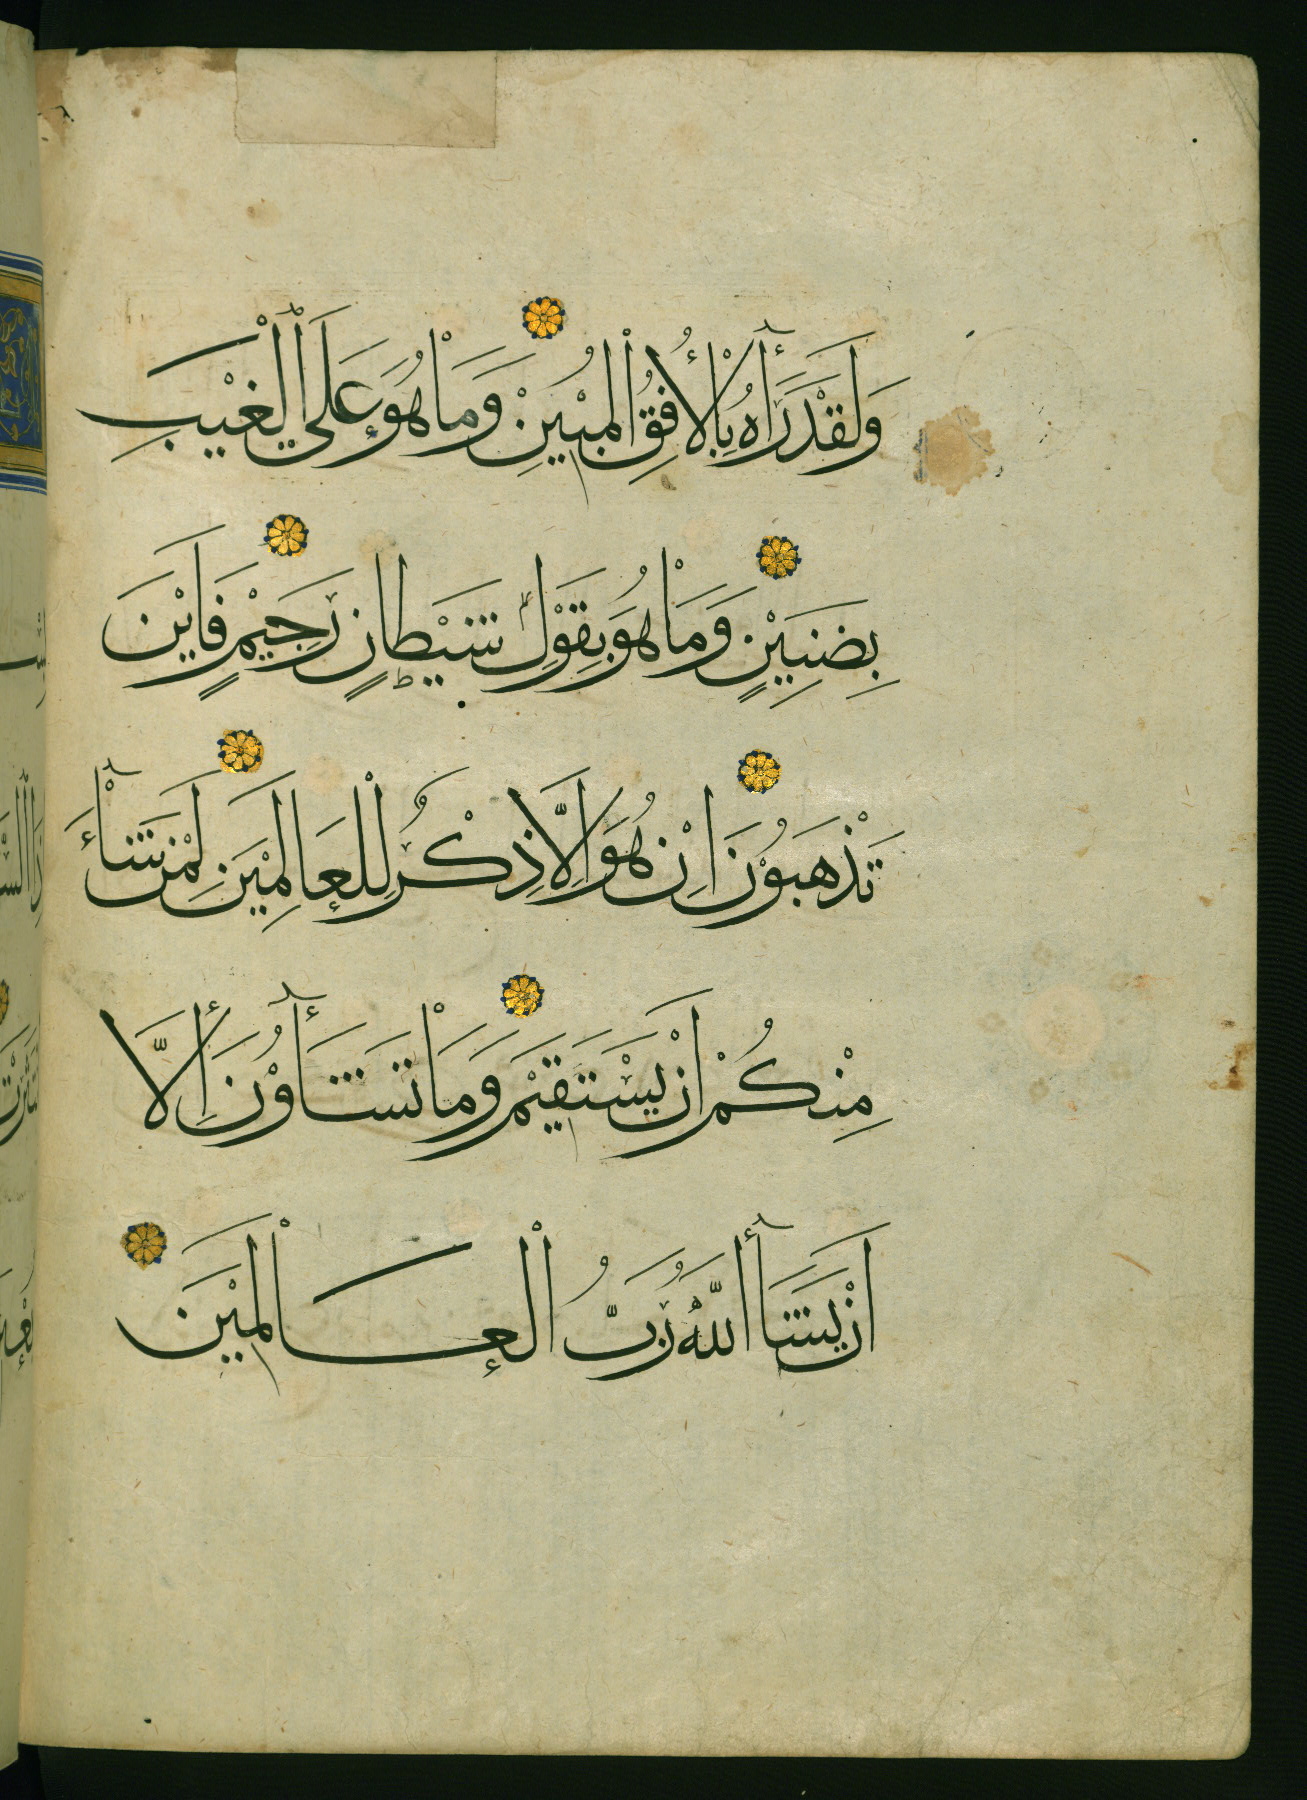 وَلَقَدْ رَآهُ بِالْأُفُقِ الْمُبِيْنِ وَمَاْ هُوَ عَلَى الْغَيْبِ
بِضَنِيْنٍ وَمَاْ هُوَ بِقَوْلِ شَيْطَانٍ رَجِيْمٍ فَاَيْنَ
تَذْهَبُوْنَ اِنْ هُوَ اِلَّا ذِكْرٌ لِلْعَالَمِيْنَ لِمَنْ شَاْءَ
مِنْكُمْ اَنْ يَسْتَقِيْمَ وَمَاْ تَشَآؤُنَ اِلَّا
اَنْ يَشَآأَ اللّٰهُ رَبُّ الْعَالَمِيْنَ